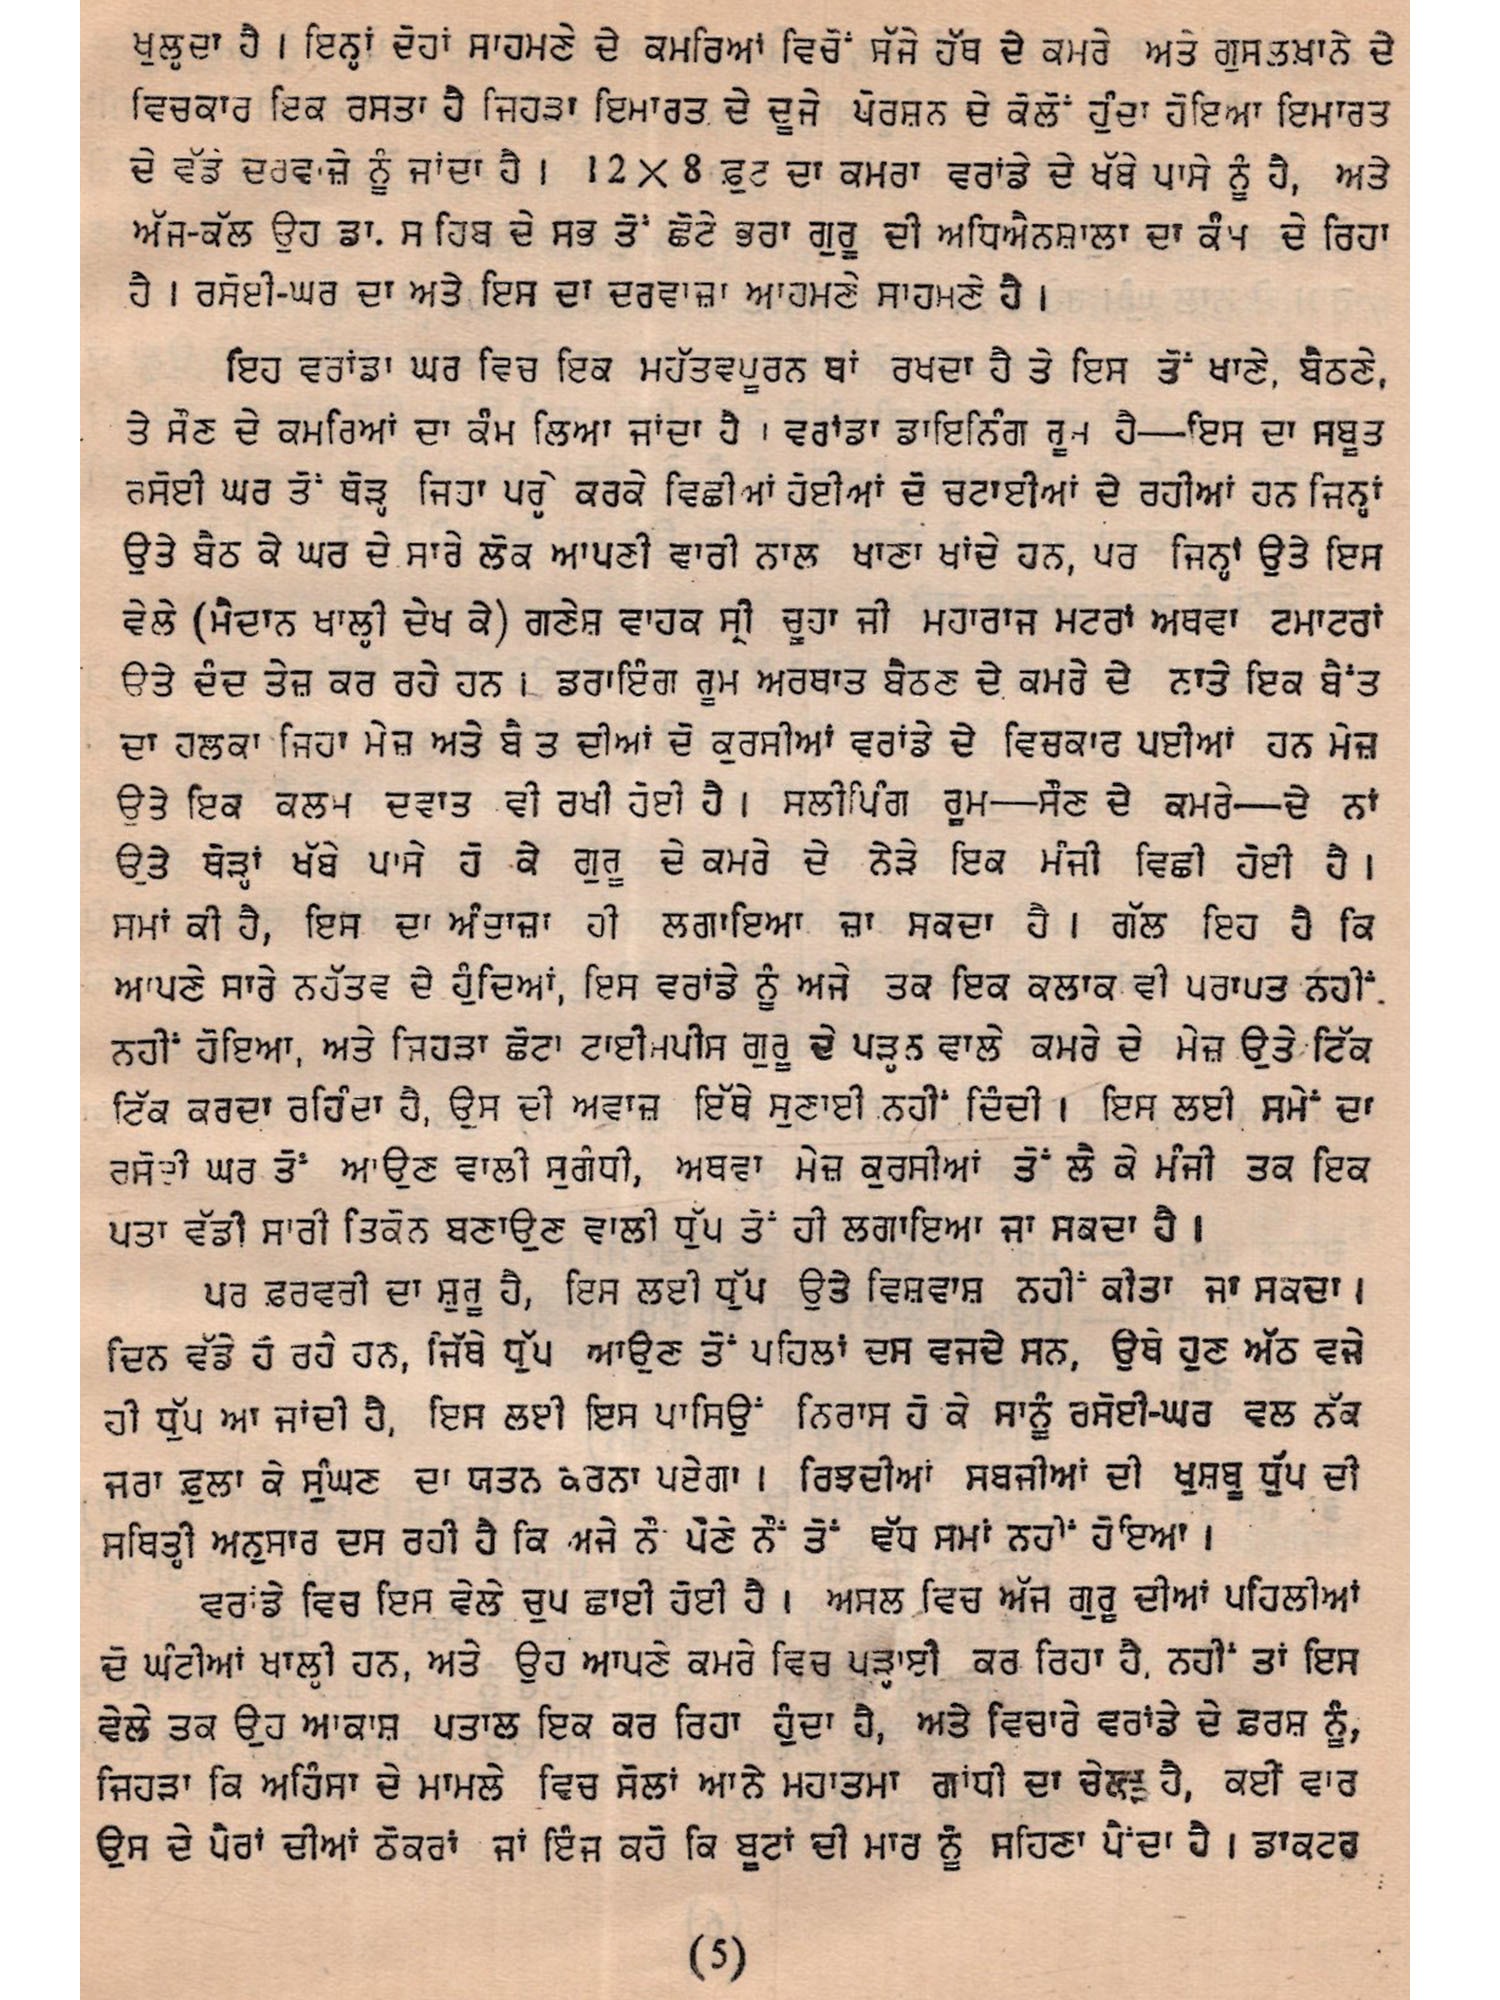 ਖੁਲ੍ਹਦਾ ਹੈ । ਇਨ੍ਹਾਂ ਦੋਹਾਂ ਸਾਹਮਣੇ ਦੇ ਕਮਰਿਆਂ ਵਿਚੋਂ ਸੱਜੇ ਹੱਥ ਦੇ ਕਮਰੇ ਅਤੇ ਗੁਸਲਖ਼ਾਨੇ ਦੇ
ਵਿਚਕਾਰ ਇਕ ਰਸਤਾ ਹੈ ਜਿਹੜਾ ਇਮਾਰਤ ਦੇ ਦੂਜੇ ਪੋਰਸ਼ਨ ਦੇ ਕੋਲੋਂ ਹੁੰਦਾ ਹੋਇਆ ਇਮਾਰਤ
ਦੇ ਵੱਡੇ ਦਰਵਾਜ਼ੇ ਨੂੰ ਜਾਂਦਾ ਹੈ । 12×8 ਫ਼ੁਟ ਦਾ ਕਮਰਾ ਵਰਾਂਡੇ ਦੇ ਖੱਬੇ ਪਾਸੇ ਨੂੰ ਹੈ, ਅਤੇ
ਅੱਜ-ਕੱਲ ਉਹ ਡਾ. ਸਾਹਿਬ ਦੇ ਸਭ ਤੋਂ ਛੋਟੇ ਭਰਾ ਗੁਰੂ ਦੀ ਅਧਿਐਨਸ਼ਾਲਾ ਦਾ ਕੰਮ ਦੇ ਰਿਹਾ
ਹੈ । ਰਸੋਈ-ਘਰ ਦਾ ਅਤੇ ਇਸ ਦਾ ਦਰਵਾਜ਼ਾ ਆਹਮਣੇ ਸਾਹਮਣੇ ਹੈ ।
ਇਹ ਵਰਾਂਡਾ ਘਰ ਵਿਚ ਇਕ ਮਹੱਤਵਪੂਰਨ ਥਾਂ ਰਖਦਾ ਹੈ ਤੇ ਇਸ ਤੋਂ ਖਾਣੇ, ਬੈਠਣੇ,
ਤੇ ਸੌਣ ਦੇ ਕਮਰਿਆਂ ਦਾ ਕੰਮ ਲਿਆ ਜਾਂਦਾ ਹੈ । ਵਰਾਂਡਾ ਡਾਇਨਿੰਗ ਰੂਮ ਹੈ—ਇਸ ਦਾ ਸਬੂਤ
ਰਸੋਈ ਘਰ ਤੋਂ ਥੋੜ੍ਹ ਜਿਹਾ ਪਰ੍ਹੇ ਕਰਕੇ ਵਿਛੀਆਂ ਹੋਈਆਂ ਦੋ ਚਟਾਈਆਂ ਦੇ ਰਹੀਆਂ ਹਨ ਜਿਨ੍ਹਾਂ
ਉਤੇ ਬੈਠ ਕੇ ਘਰ ਦੇ ਸਾਰੇ ਲੋਕ ਆਪਣੀ ਵਾਰੀ ਨਾਲ ਖਾਣਾ ਖਾਂਦੇ ਹਨ, ਪਰ ਜਿਨ੍ਹਾਂ ਉਤੇ ਇਸ
ਵੇਲੇ (ਮੈਦਾਨ ਖਾਲ੍ਹੀ ਦੇਖ ਕੇ) ਗਣੇਸ਼ ਵਾਹਕ ਸ੍ਰੀ ਚੂਹਾ ਜੀ ਮਹਾਰਾਜ ਮਟਰਾਂ ਅਥਵਾ ਟਮਾਟਰਾਂ
ਉਤੇ ਦੰਦ ਤੇਜ਼ ਕਰ ਰਹੇ ਹਨ । ਡਰਾਇੰਗ ਰੂਮ ਅਰਥਾਤ ਬੈਠਣ ਦੇ ਕਮਰੇ ਦੇ ਨਾਤੇ ਇਕ ਬੈਂਤ
ਦਾ ਹਲਕਾ ਜਿਹਾ ਮੇਜ਼ ਅਤੇ ਬੈਤ ਦੀਆਂ ਦੋ ਕੁਰਸੀਆਂ ਵਰਾਂਡੇ ਦੇ ਵਿਚਕਾਰ ਪਈਆਂ ਹਨ ਮੇਜ਼
ਉਤੇ ਇਕ ਕਲਮ ਦਵਾਤ ਵੀ ਰਖੀ ਹੋਈ ਹੈ । ਸਲੀਪਿੰਗ ਰੂਮ—ਸੌਣ ਦੇ ਕਮਰੇ—ਦੇ ਨਾਂ
ਉਤੇ ਥੋੜ੍ਹਾਂ ਖੱਬੇ ਪਾਸੇ ਹੋ ਕੇ ਗੁਰੂ ਦੇ ਕਮਰੇ ਦੇ ਨੇੜੇ ਇਕ ਮੰਜੀ ਵਿਛੀ ਹੋਈ ਹੈ ।
ਸਮਾਂ ਕੀ ਹੈ, ਇਸ ਦਾ ਅੰਦਾਜ਼ਾ ਹੀ ਲਗਾਇਆ ਜ਼ਾ ਸਕਦਾ ਹੈ । ਗੱਲ ਇਹ ਹੈ ਕਿ
ਆਪਣੇ ਸਾਰੇ ਨਹੱਤਵ ਦੇ ਹੁੰਦਿਆਂ, ਇਸ ਵਰਾਂਡੇ ਨੂੰ ਅਜੇ ਤਕ ਇਕ ਕਲਾਕ ਵੀ ਪਰਾਪਤ ਨਹੀਂ.
ਨਹੀਂ ਹੋਇਆ, ਅਤੇ ਜਿਹੜਾ ਛੋਟਾ ਟਾਈਮਪੀਸ ਗੁਰੂ ਦੇ ਪੜ੍ਹਨ ਵਾਲੇ ਕਮਰੇ ਦੇ ਮੇਜ਼ ਉਤੇ ਟਿੱਕ
ਟਿੱਕ ਕਰਦਾ ਰਹਿੰਦਾ ਹੈ, ਉਸ ਦੀ ਅਵਾਜ਼ ਇੱਥੇ ਸੁਣਾਈ ਨਹੀਂ ਦਿੰਦੀ । ਇਸ ਲਈ ਸਮੇਂ ਦਾ
ਰਸੋਈ ਘਰ ਤੋਂ ਆਉਣ ਵਾਲੀ ਸੁਗੰਧੀ, ਅਥਵਾ ਮੇਜ਼ ਕੁਰਸੀਆਂ ਤੋਂ ਲੈ ਕੇ ਮੰਜੀ ਤਕ ਇਕ
ਪਤਾ ਵੱਡੀ ਸਾਰੀ ਤਿਕੋਨ ਬਣਾਉਣ ਵਾਲੀ ਧੁੱਪ ਤੋਂ ਹੀ ਲਗਾਇਆ ਜਾ ਸਕਦਾ ਹੈ ।
ਪਰ ਫ਼ਰਵਰੀ ਦਾ ਸ਼ੁਰੂ ਹੈ, ਇਸ ਲਈ ਧੁੱਪ ਉਤੇ ਵਿਸ਼ਵਾਸ਼ ਨਹੀਂ ਕੀਤਾ ਜਾ ਸਕਦਾ ।
ਦਿਨ ਵੱਡੇ ਹੋ ਰਹੇ ਹਨ, ਜਿੱਥੇ ਧੁੱਪ ਆਉਣ ਤੋਂ ਪਹਿਲਾਂ ਦਸ ਵਜਦੇ ਸਨ, ਉਥੇ ਹੁਣ ਅੱਠ ਵਜੇ
ਹੀ ਧੁੱਪ ਆ ਜਾਂਦੀ ਹੈ, ਇਸ ਲਈ ਇਸ ਪਾਸਿਉਂ ਨਿਰਾਸ ਹੋ ਕੇ ਸਾਨੂੰ ਰਸੋਈ-ਘਰ ਵਲ ਨੱਕ
ਜਰਾ ਫ਼ੁਲਾ ਕੇ ਸੁੰਘਣ ਦਾ ਯਤਨ ਕਰਨਾ ਪਏਗਾ । ਰਿਝਦੀਆਂ ਸਬਜੀਆਂ ਦੀ ਖੁਸ਼ਬੂ ਧੁੱਪ ਦੀ
ਸਥਿਤ੍ਹੀ ਅਨੁਸਾਰ ਦਸ ਰਹੀ ਹੈ ਕਿ ਅਜੇ ਨੌ ਪੌਣੇ ਨੌਂ ਤੋਂ ਵੱਧ ਸਮਾਂ ਨਹੀਂ ਹੋਇਆ ।
ਵਰਾਂਡੇ ਵਿਚ ਇਸ ਵੇਲੇ ਚੁਪ ਛਾਈ ਹੋਈ ਹੈ । ਅਸਲ ਵਿਚ ਅੱਜ ਗੁਰੂ ਦੀਆਂ ਪਹਿਲੀਆਂ
ਦੋ ਘੰਟੀਆਂ ਖਾਲ੍ਹੀ ਹਨ, ਅਤੇ ਉਹ ਆਪਣੇ ਕਮਰੇ ਵਿਚ ਪੜ੍ਹਾਈ ਕਰ ਰਿਹਾ ਹੈ, ਨਹੀਂ ਤਾਂ ਇਸ
ਵੇਲੇ ਤਕ ਉਹ ਆਕਾਸ਼ ਪਤਾਲ ਇਕ ਕਰ ਰਿਹਾ ਹੁੰਦਾ ਹੈ, ਅਤੇ ਵਿਚਾਰੇ ਵਰਾਂਡੇ ਦੇ ਫ਼ਰਸ਼ ਨੂੰ,
ਜਿਹੜਾ ਕਿ ਅਹਿੰਸਾ ਦੇ ਮਾਮਲੇ ਵਿਚ ਸੋਲਾਂ ਆਨੇ ਮਹਾਤਮਾ ਗਾਂਧੀ ਦਾ ਹੈ, ਕਈ ਵਾਰ
ਉਸ ਦੇ ਪੈਰਾਂ ਦੀਆਂ ਠੋਕਰਾਂ ਜਾਂ ਇੰਜ ਕਹੋ ਕਿ ਬੂਟਾਂ ਦੀ ਮਾਰ ਨੂੰ ਸਹਿਣਾ ਪੈਂਦਾ ਹੈ । ਡਾਕਟਰ
(5)